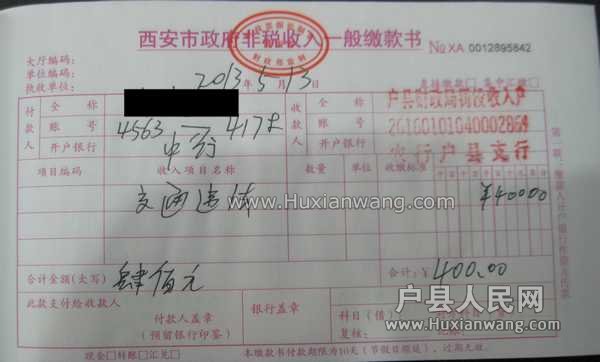 西安市政府非税收入一般缴款书 No XA 0012895842
大厅编码：
单位编码：
执收单位：
2013年5月13日
付款人 全称
账号 4563 — 4178
开户银行 中行
收款人 全称 户县财政局罚没收入户
账号
开户银行 农行户县支行
项目编码 收入项目名称 数量 单位 收缴标准
交通违法 ¥40000
www.Huxianwang.com
合计金额(大写) 肆佰元 合计：¥ 400.00
此款支付给收款人
付款人盖章
(预留银行印鉴)
银行盖章
科目（借）
复核：
户县人民网
www.Huxianwang.com
现金□ 转账□ 汇兑□ 本缴款书付款期限为10天（节假日顺延），过期无效。